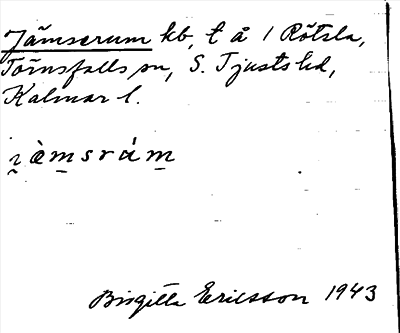 Jämserum kb, t å 1 Rötsla,
Törnsfalls sn, S. Tjusts hd,
Kalmar l.
i̯èm̲srám̲
Birgitta Ericsson 1943